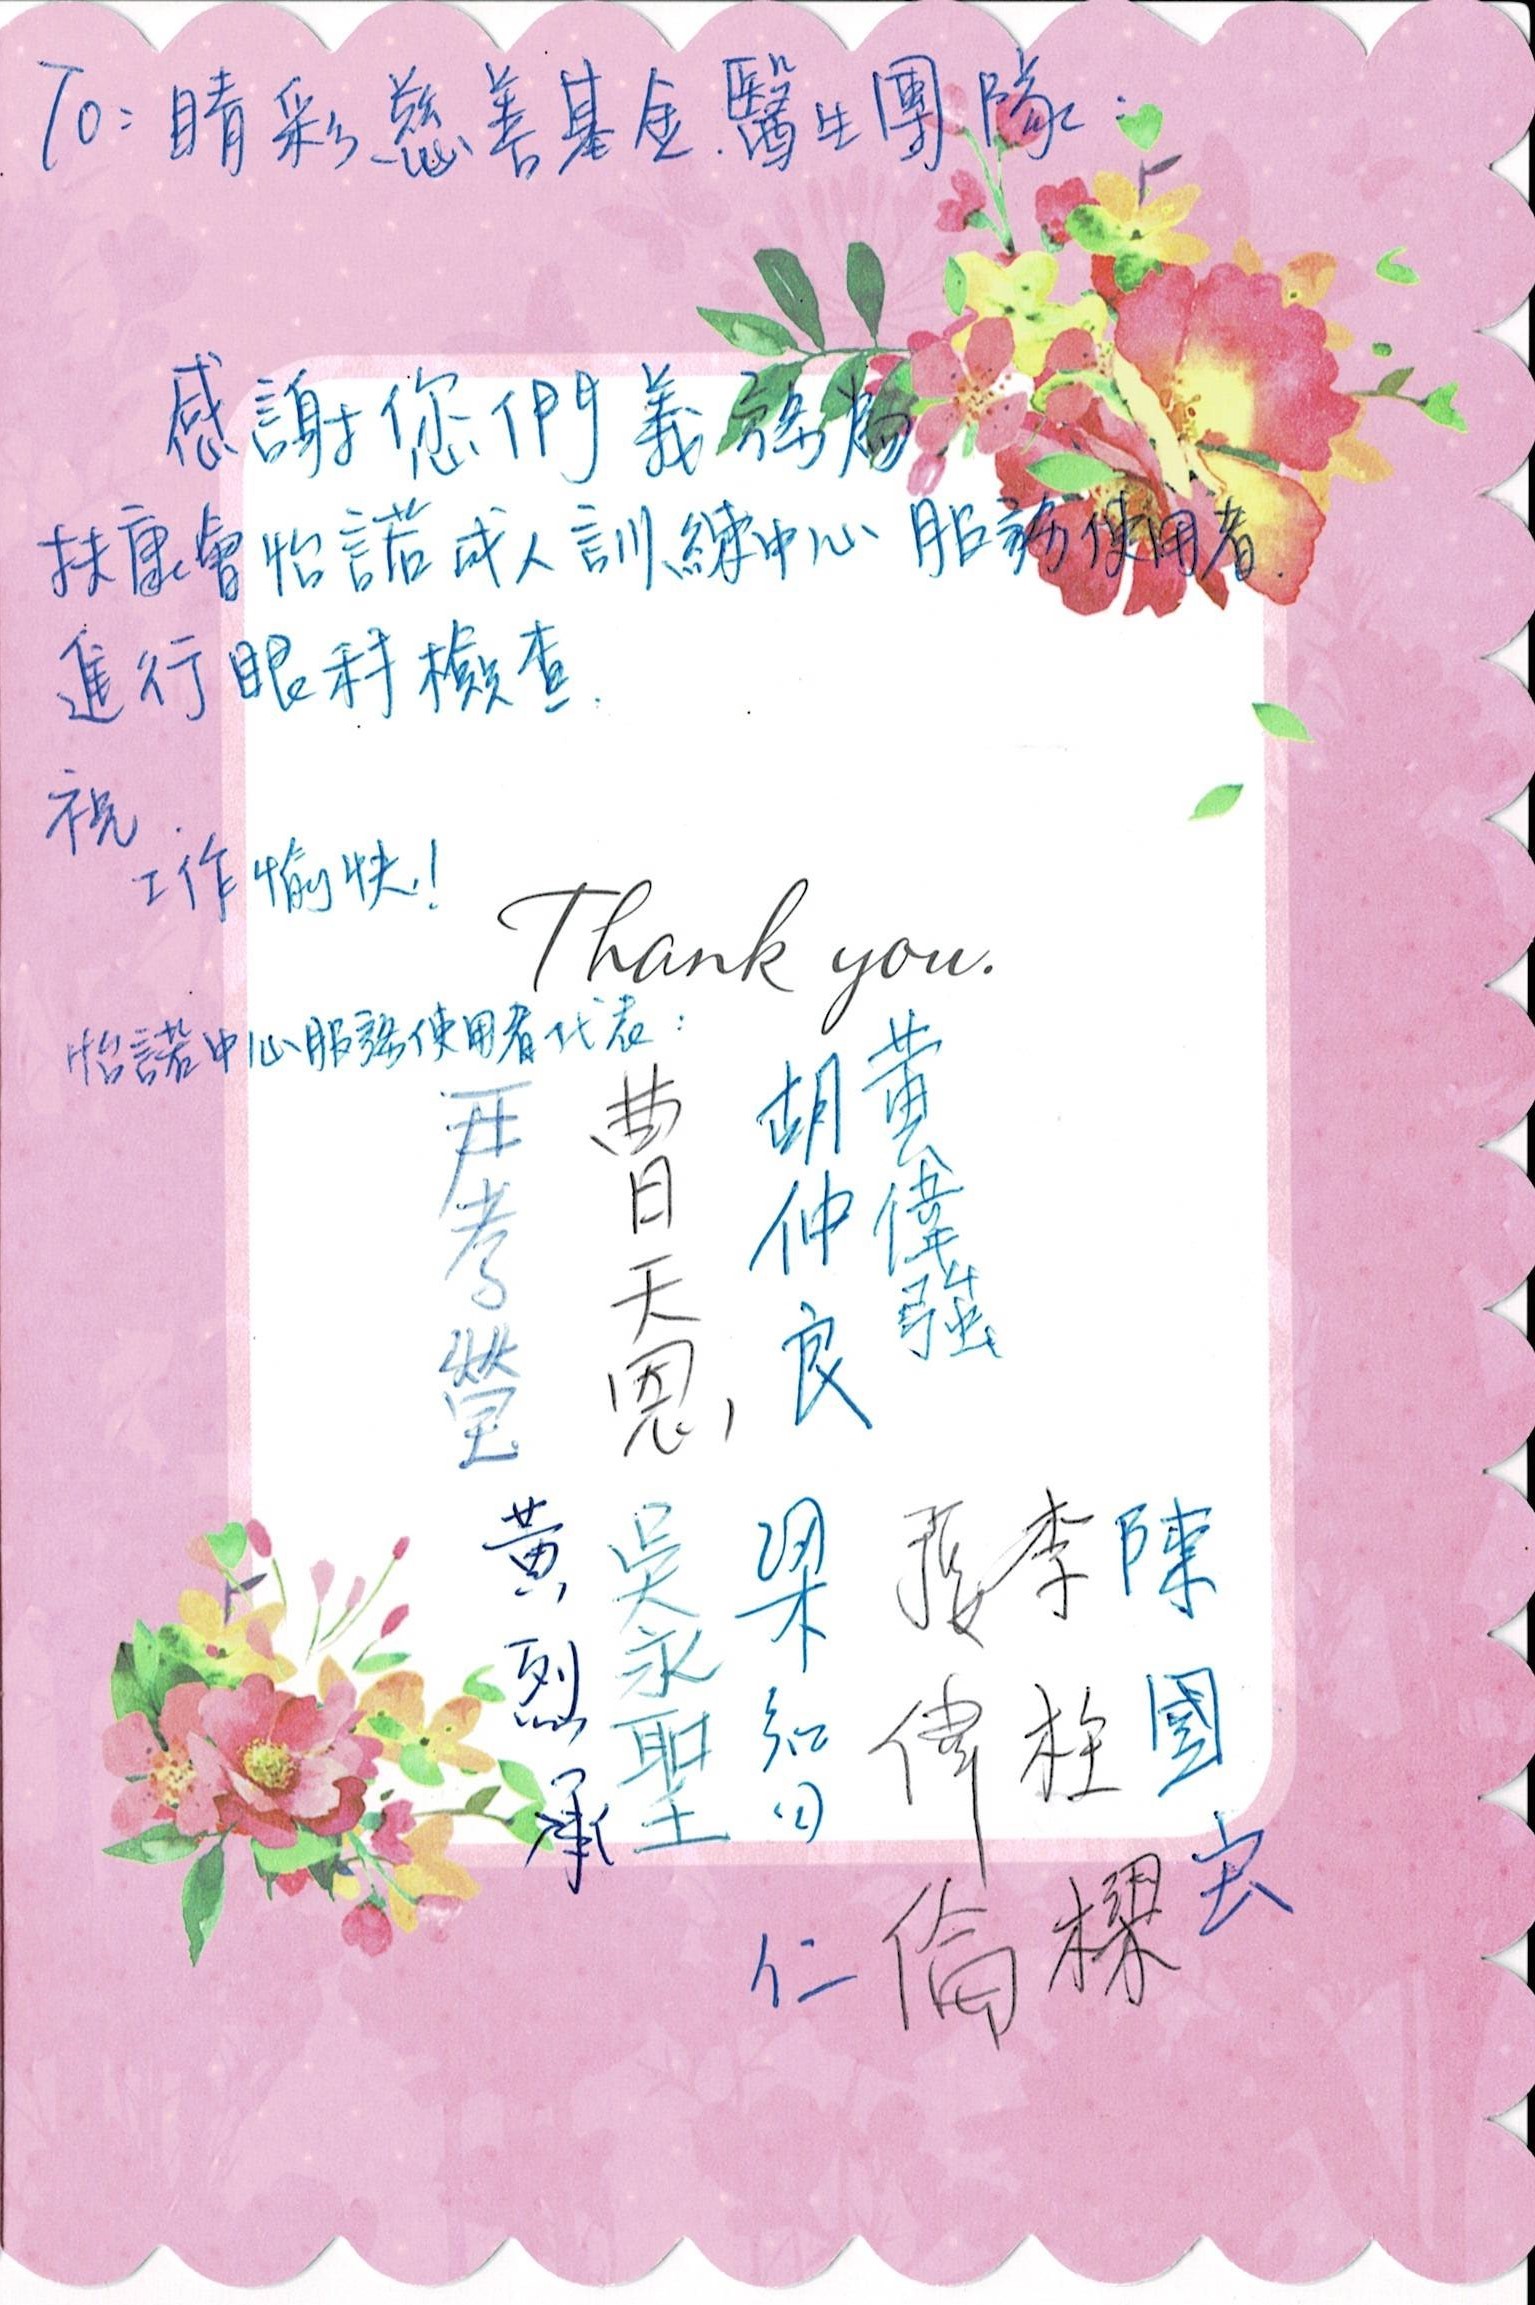 To: 睛彩慈善基金.醫生團隊:
感謝您們義務為
扶康會怡諾成人訓練中心 服務使用者.
進行眼科檢查.
祝.
工作愉快!
Thank you.
怡諾中心服務使用者代表:
孝瑩
曹天恩,
胡仲良
黃偉強
黃烈承
吳永聖
梁知仁
張偉倫
李栓樑
陳國宏